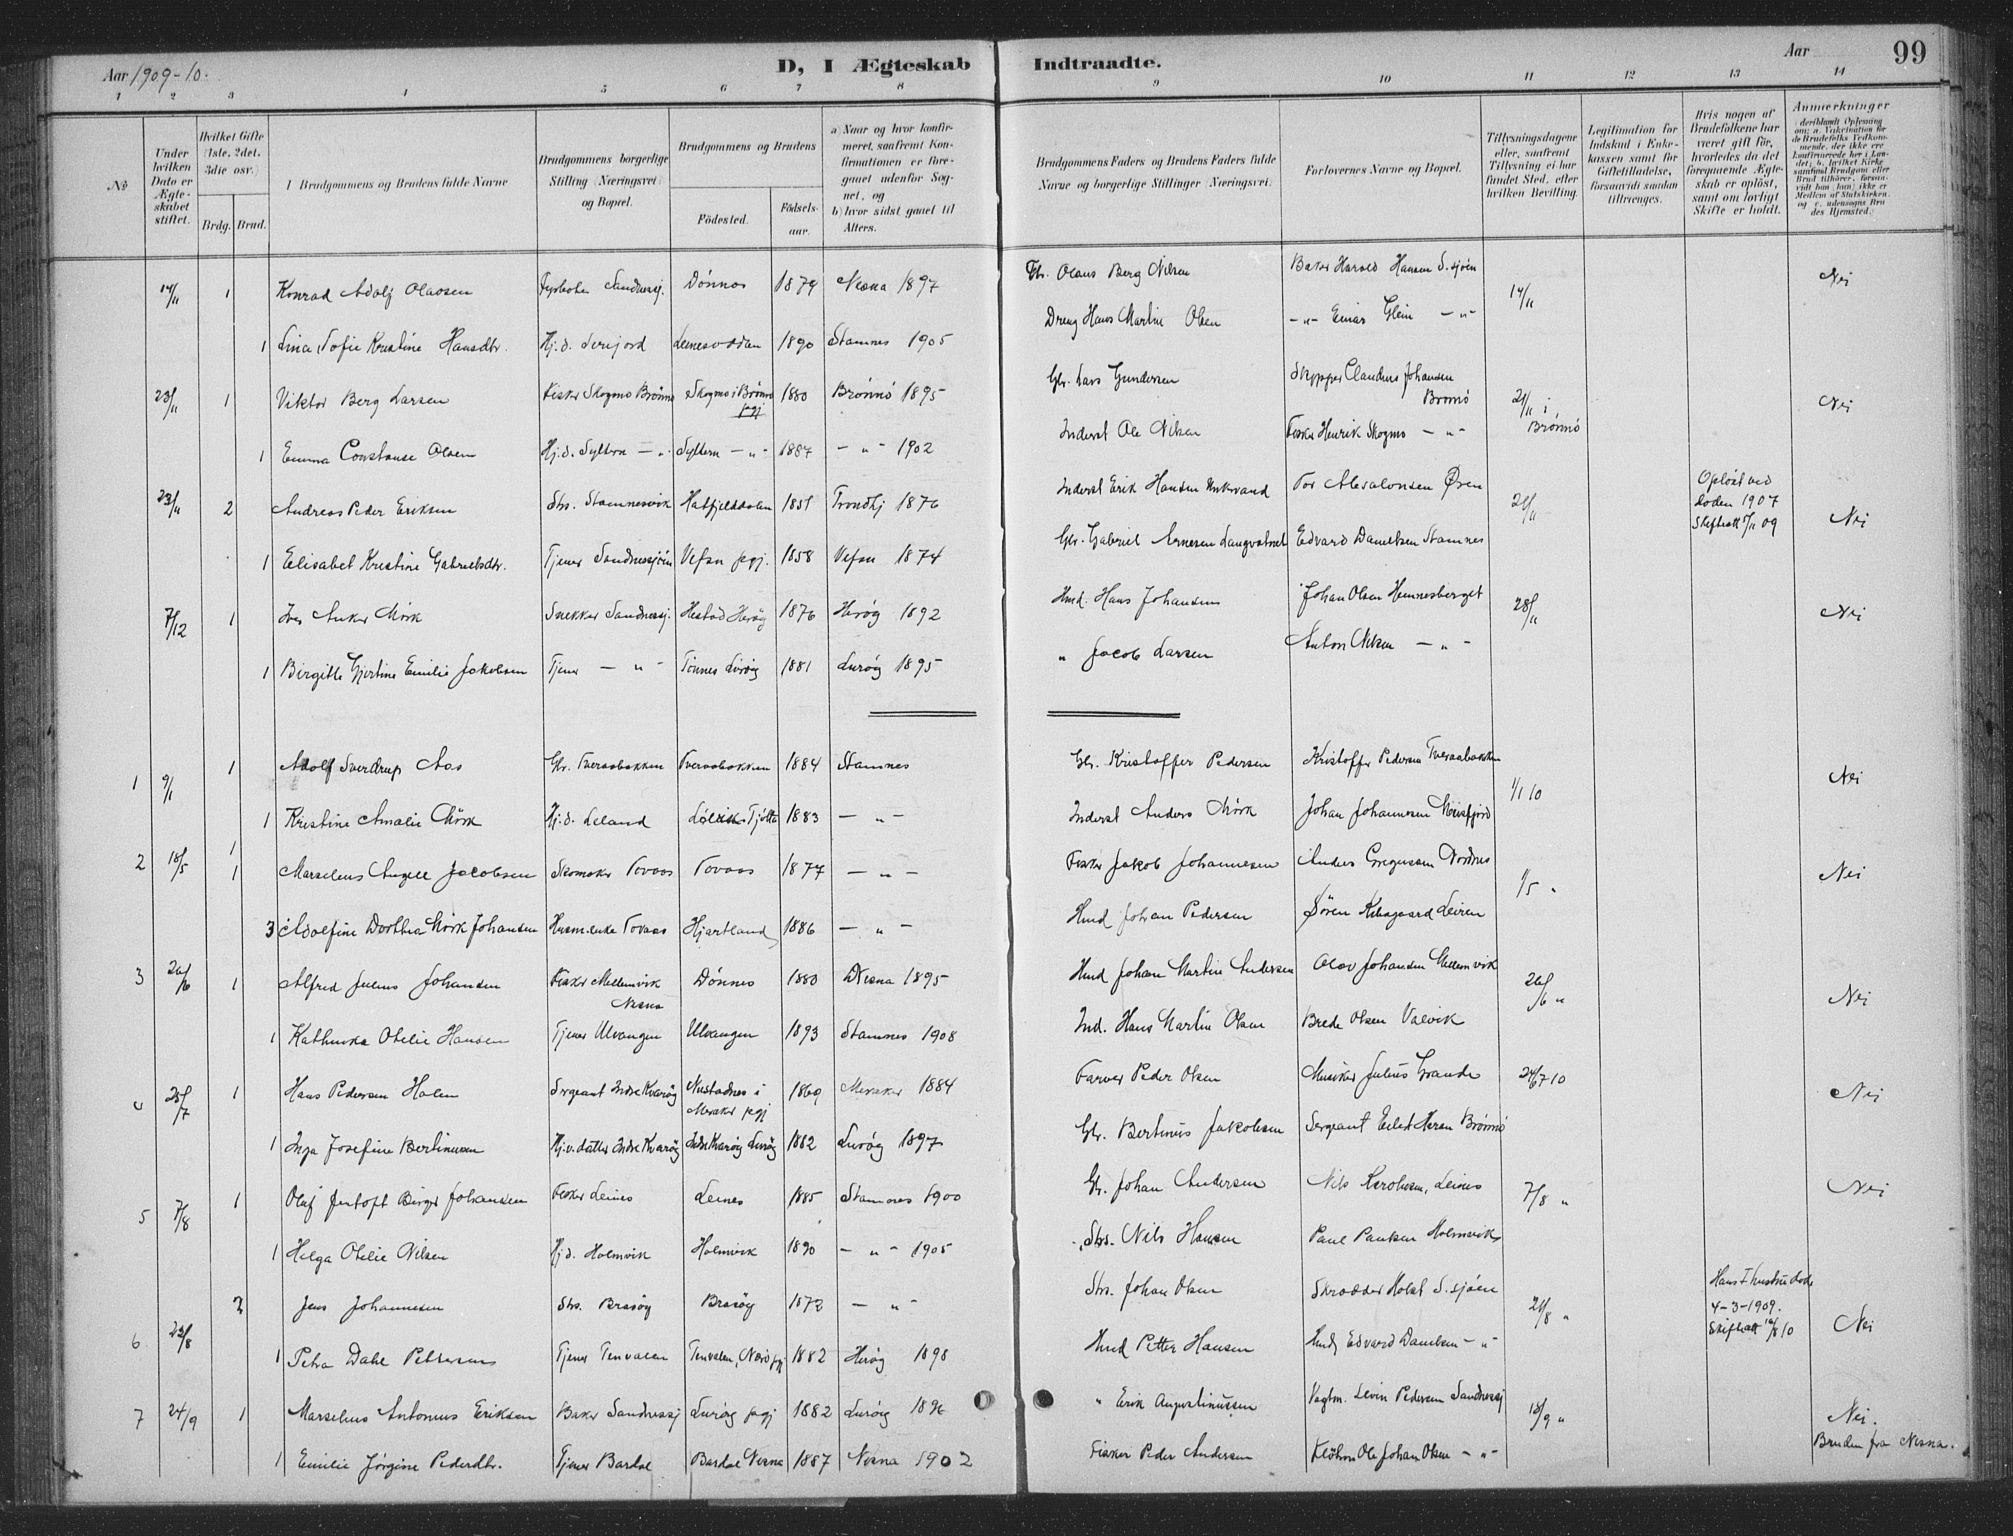 Aar 1909-10.
D, I Ægteskab Indtraadte.
Aar
99
1 2 3 4 5 6 7 8 9 10 11 12 13 14
No
Under hvilken Dato er Ægteskabet stiftet.
Hvilket Gifte (1ste, 2det, 3die osv.)
Brdg. Brud.
Brudgommens og Brudens fulde Navne
Brudgommens borgerlige Stilling (Næringsvei) og Bopæl.
Brudgommens og Brudens
Födested.
Födselsaar.
a) Naar og hvor konfirmeret, saafremt Konfirmationen er foregaaet udenfor Sognet, og
b) hvor sidst gaaet til Alters.
Brudgommens Faders og Brudens Faders fulde Navne og borgerlige Stillinger (Næringsvei).
Forlovernes Navne og Bopæl.
Tillysningsdagene eller, saafremt Tillysning ei har fundet Sted, efter hvilken Bevilling.
Legitimation for Indskud i Enkekassen samt for Giftetilladelse, forsaavidt saadan tiltrænges.
Hvis nogen af Brudefolkene har været gift för, hvorledes da det foregaaende Ægteskab er oplöst, samt om lovligt Skifte er holdt.
Anmærkninger
14/11 1 Konrad Adolf Olaosen Sandnessj. Dønnes 1879 Nesna 1897 Gbr. Olaus Berg Nilsen Baker Harald Hansen S.sjøen 14/11 Nei
1 Lina Sofie Kristine Hansdtr. Hj.d. 1890 Stamnes 1905 Dreng Hans Martin Olsen -"- Einar Glein -"-
23/11 1 Viktor Berg Larsen Fisker Skogmo Brønnø Skogmo i Brønnø pgj 1880 Brønnø 1895 Gbr. Lars Gundersen Skipper Claudius Johansen Brønnø 21/11 i Brønnø Nei
1 Emma Constanse Olsen Hj.d. Syltern -"- Syltern -"- 1887 -"- 1902 Inderst Ole Nilsen Fisker Henrik Skogmo -"-
23/11 2 Andreas Peder Eriksen Strs. Stamnesvik Hatfjelddalen 1851 Trondhj 1876 Inderst Erik Hansen Unkervand Tor Absalonsen Øren 21/11 Opløst ved døden 1907 Skifteatt 5/11 09 Nei
1 Elisabet Kristine Gabrielsdtr. Tjener Sandnessjøen Vefsn pgj. 1858 Vefsn 1874 Gbr. Gabriel Arnesen Langvatnet Edvard Danielsen Stamnes
7/12 1 Iver Anker Mørk Snekker Sandnessj. Hestad Herøy 1876 Herøy 1892 Hmd. Hans Johansen Johan Olsen Hemnesberget 28/11 Nei
1 Birgitte Hjertine Emilie Jakobsen Tjener -"- Tonnes Lurøy 1881 Lurøy 1895 " Jacob Larsen Anton Nilsen -"-
1 9/1 1 Adolf Sverdrup Aas Gbr. Tveraabakken Tveraabakken 1884 Stamnes Gbr. Kristoffer Pedersen Kristoffer Pedersen Tveraabakken 1/1 10 Nei
1 Kristine Amalie Mørk Hj.d. Leland Tjøtta 1883 -"- Inderst Anders Mørk Johan Johannesen Meisfjord
2 18/5 1 1 Marselius Angell Jacobsen Skomaker Tovaas Tovaas 1874 -"- Fisker Jakob Johannesen Anders Gregussen Nordnes 1/5 " Nei
3 Adolfine Dorthea Mørk Johansen Husm.enke Tovaas Hjartland 1886 -"- Hmd Johan Pedersen Søren Kibsgaard Leiren
3 26/6 1 Alfred Julius Johansen Fisker Mellemvik Nesna Dønnes 1880 Nesna 1895 Hmd Johan Martin Andersen Olav Johansen Mellemvik 26/6 " Nei
1 Kathinka Otelie Hansen Tjener Ulvangen Ulvangen 1893 Stamnes 1908 Ind. Hans Martin Olsen Brede Olsen Valvik
4 25/7 1 Hans Pedersen Holen Sergeant Indre Kvarøy Nustadnes i Meraker pgj 1869 Meraker 1884 Farver Peder Olsen Musiker Julius Grande 24/7 10 Nei
1 Inga Josefine Bertinussen Hj.v. datter Indre Kvarøy Indre Kvarøy Lurøy 1882 Lurøy 1897 Gbr. Bertinus Jakobsen Sergeant Brønnø
5 7/8 1 Oluf Jentoft Birger Johansen Fisker Leines Leines 1885 Stamnes 1900 Gbr. Johan Andersen Nils Karolusen, Leines 7/8 " Nei
1 Helga Otelie Nilsen Hj.d. Holmvik Holmvik 1890 -"- 1905 Strs. Nils Hansen Paul Paulsen Holmvik
6 23/8 2 Jens Johannesen Strs. Brasøy Brasøy 1872 -"- Strs. Johan Olsen Skrædder Holst S.sjøen 21/8 " Hans 1 hustru døde 4-3-1909. Skifteatt 12/8 10 Nei
1 Petra Dahl Pettersens Tjener Tenvalen Tenvalen, Nord pgj. 1882 Herøy 1898 Hmd Petter Hansen Hmd Edvard Danielsen -"-
7 24/9 1 Marselius Antonius Eriksen Baker Sandnessj Lurøy pgj 1882 Lurøy 1896 " Erik Augustinussen Vagtm. Levin Pedersen Sandnessj 18/9 " Nei.
1 Emilie Jørgine Pedersdtr. Tjener Bardal Bardal Nesna 1887 Nesna 1902 Fisker Peder Andersen Ole Johan Olsen -"- Bruden fra Nesna.